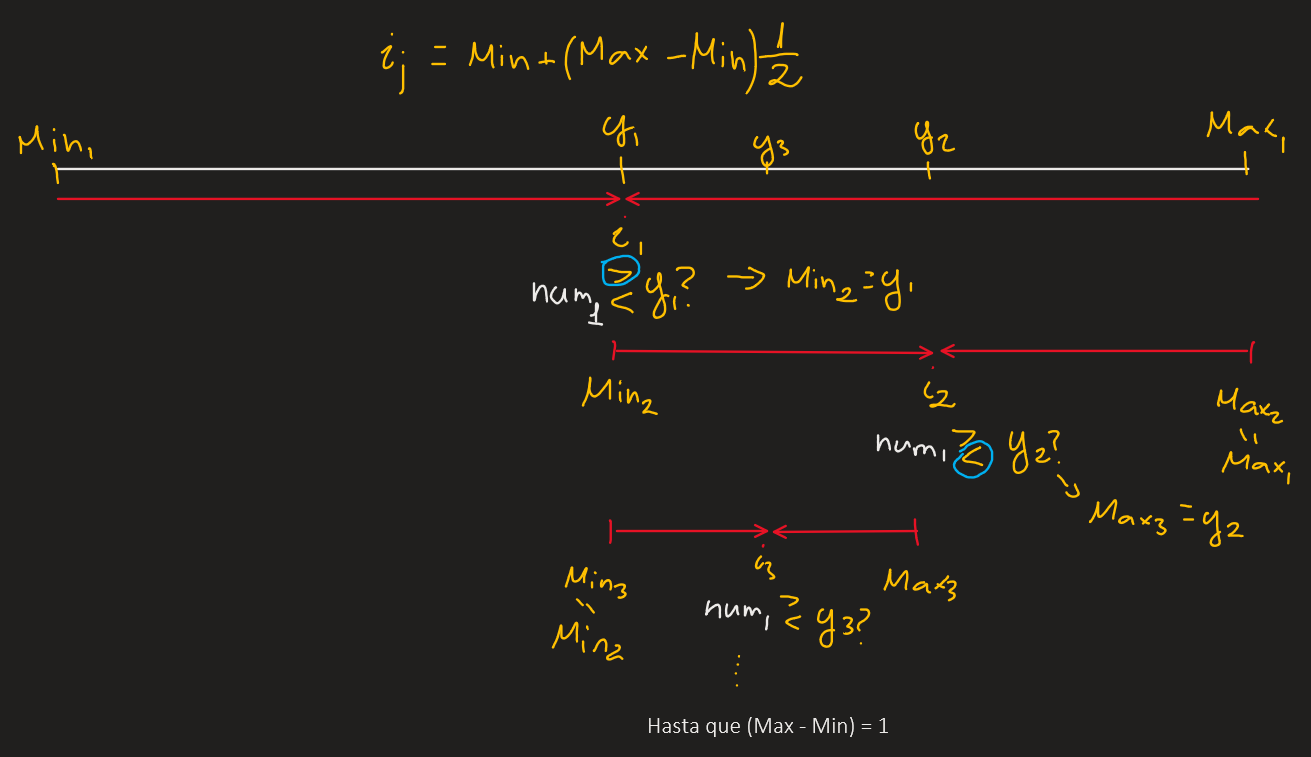 i_j = Min + (Max - Min) 1/2
Min₁ y₁ y₃ y₂ Max₁
i₁
num₁ > < y₁? → Min₂ = y₁
Min₂ i₂ Max₂
=
Max₁
num₁ > < y₂?
↘ Max₃ = y₂
Min₃ i₃ Max₃
=
Min₂
num₁ > < y₃?
⋮
Hasta que (Max - Min) = 1